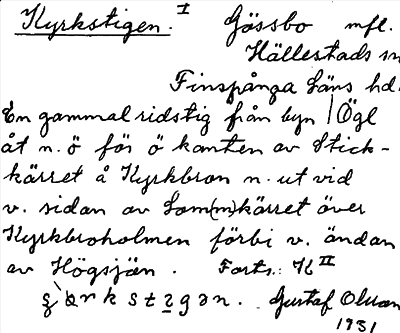 Kyrkstigen. I Gössbo mfl.
Hällestads sn
Finspånga Läns hd.
En gammal ridstig från byn | Ögl
åt n. ö för ö kanten av Stick-
kärret å Kyrkbron n. ut vid
v. sidan av Lom(m)kärret över
Kyrkbroholmen förbi v. ändan
av Högsjön. Forts.: K II
Gustaf Olsson
1931